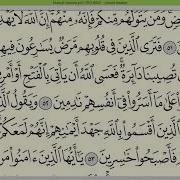 ضٍ وَمَن يَتَوَلَّهُم مِّنكُمْ فَإِنَّهُۥ مِنْهُمْ إِنَّ ٱللَّهَ لَا يَهْدِ
٥١ فَتَرَى ٱلَّذِينَ فِى قُلُوبِهِم مَّرَضٌ يُسَـٰرِعُونَ فِيهِ
تُصِيبَنَا دَآئِرَةٌ فَعَسَى ٱللَّهُ أَن يَأْتِىَ بِٱلْفَتْحِ أَوْ أَمْرٍ
عَلَىٰ مَآ أَسَرُّوا۟ فِىٓ أَنفُسِهِمْ نَـٰدِمِينَ ٥٢ وَيَقُولُ ٱلَّذِ
ٱلَّذِينَ أَقْسَمُوا۟ بِٱللَّهِ جَهْدَ أَيْمَـٰنِهِمْ إِنَّهُمْ لَمَعَكُمْ
فَأَصْبَحُوا۟ خَـٰسِرِينَ ٥٣ يَـٰٓأَيُّهَا ٱلَّذِينَ ءَامَنُوا۟ مَن